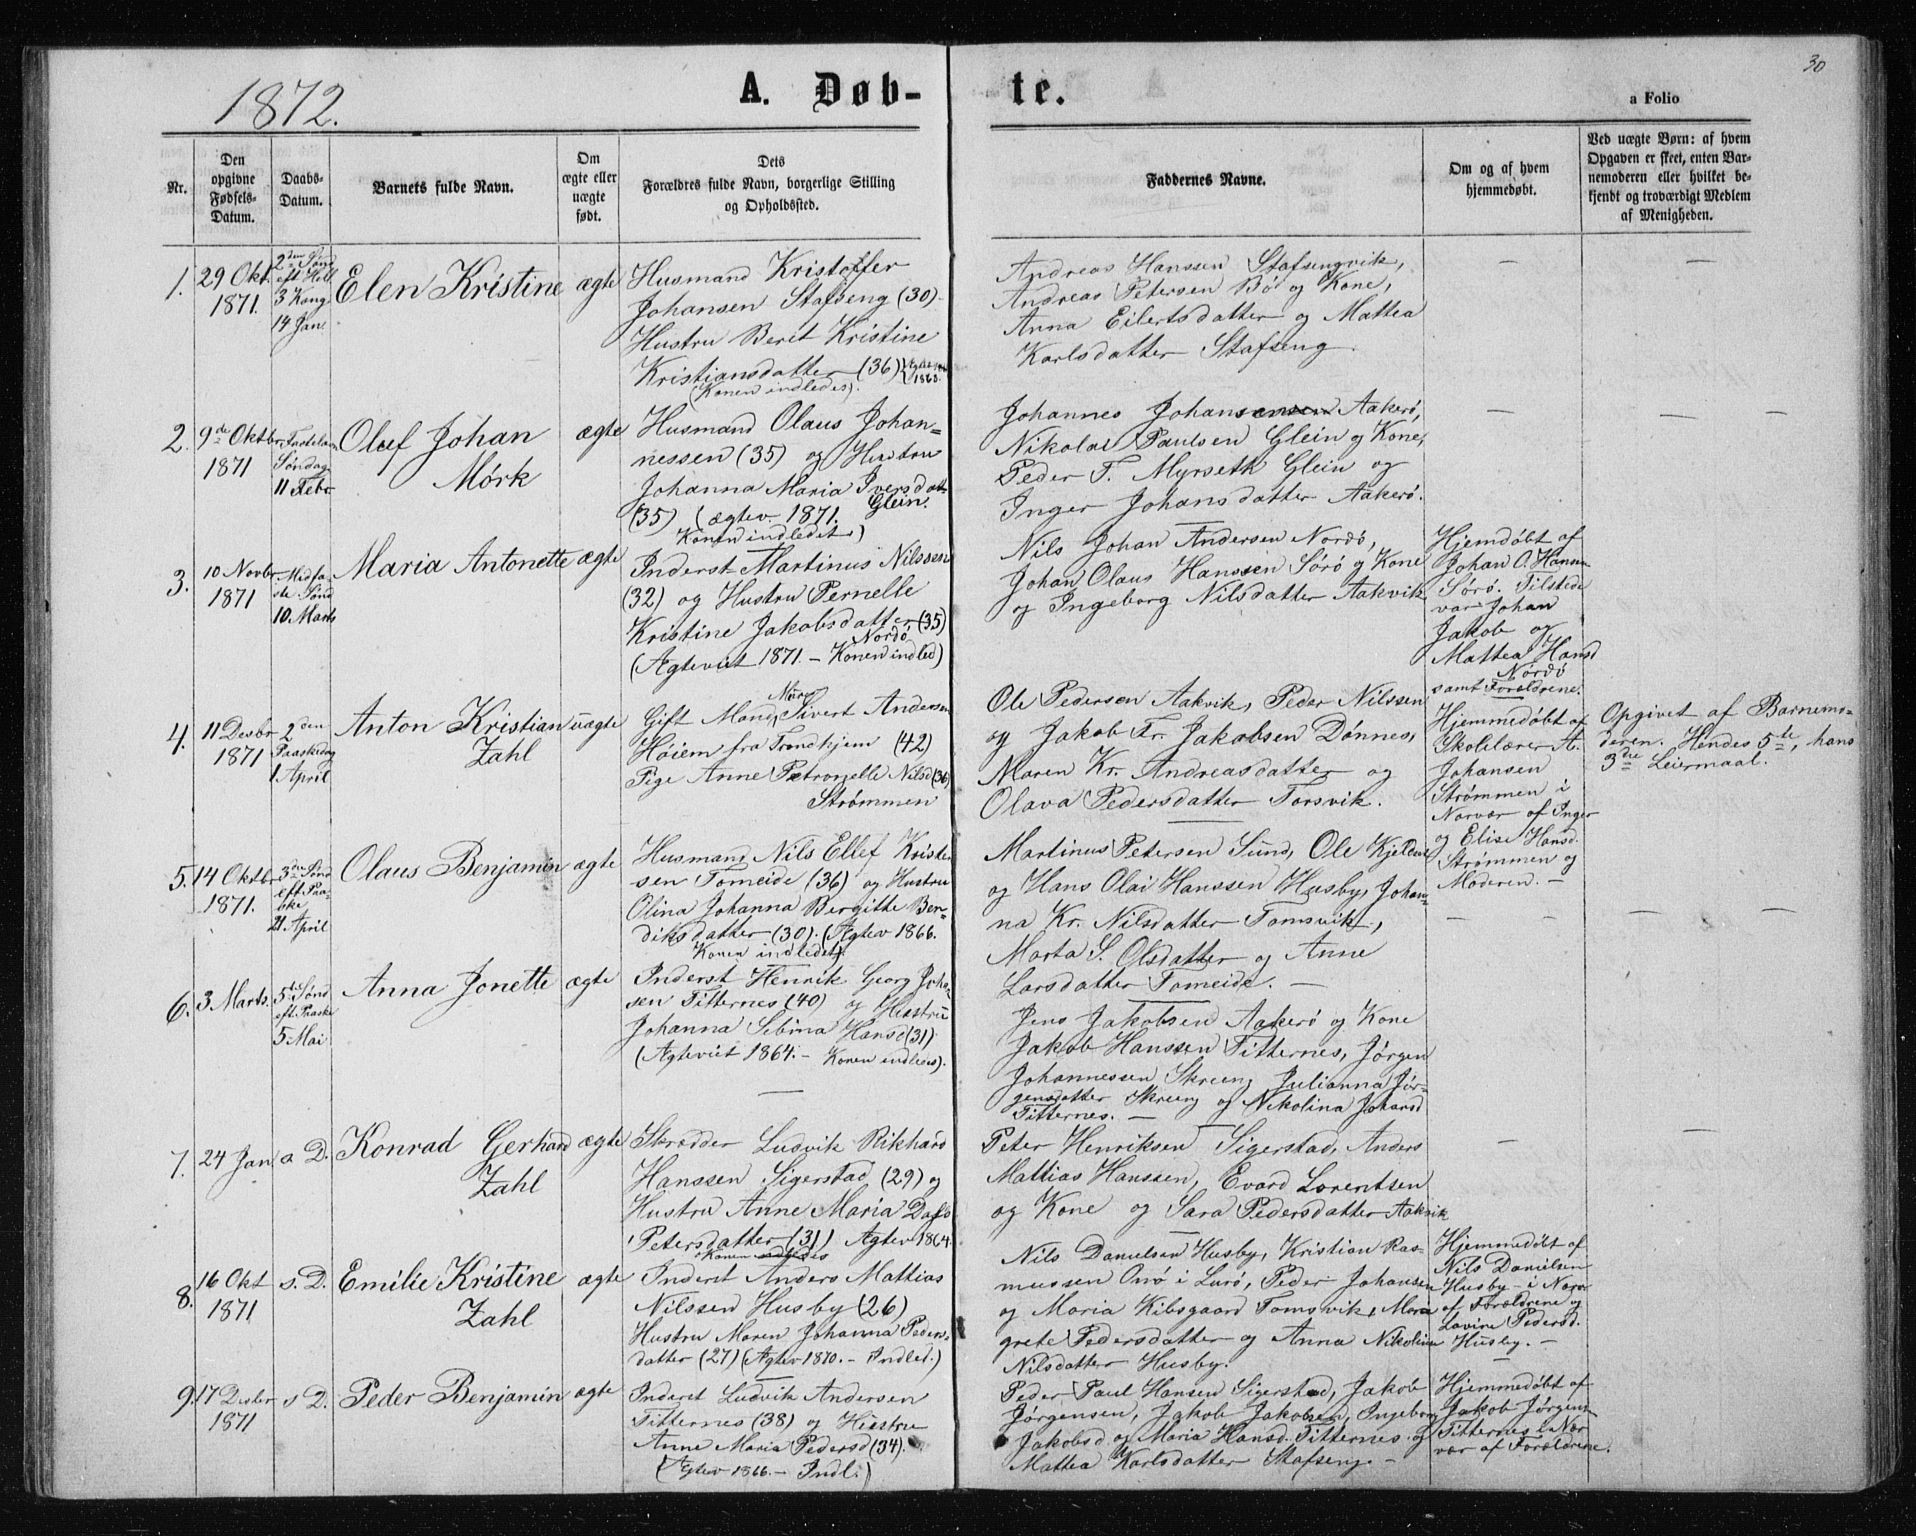 1872.
A. Døb-
te.
30
a Folio
Nr.
Den
opgivne
Fødsels-
Datum.
Daabs-
Datum.
Barnets fulde Navn.
Om
ægte eller
uægte
født.
Dets
Forældres fulde Navn, borgerlige Stilling
og Opholdssted.
Faddernes Navne.
Om og af hvem
hjemmedøbt.
Ved uægte Børn: af hvem
Opgaven er skeet, enten Bar-
nemoderen eller hvilket be-
kjendt og troværdigt Medlem
af Menigheden.
1.
29 Okt.
1871.
2den Sønd
eft Hell
3 Kong
14 Jan.
Elen Kristine
ægte
Husmand Kristoffer
Johansen Stafseng (30)
Hustru Berit Kristine
Kristiansdatter (36)
(Konen indledes).
Andreas Hanssen Stafsengvik,
Andreas Petersen Bø og Kone,
Anna Eilertsdatter og Mattea
Karlsdatter Stafseng.
—
—
2.
9de Oktbr
1871
Fastelavn
Søndag
11 Febr
Oluf Johan
Mørk
ægte
Husmand Olaus Johan-
nessen (35) og Hustru
Johanna Maria Iversdatt
Glein.
(35) (ægtev. 1871.
Konen indledet.)
Johannes Johansen Aakerö,
Nikolai Paulsen Glein og Kone,
Peder T. Myrseth Glein og
Inger Johansdatter Aakerö.
—
—
—
3.
10 Novbr
1871
Midfa-
ste Sønd
10. Marts
Maria Antonette
ægte
Inderst Martinus Nilssen
(32) og Hustru Pernelle
Kristine Jakobsdatter (35)
Nordö
(Ægteviet 1871. – Konen indled)
Nils Johan Andersen Nordö,
Johan Olaus Hanssen Sörö og Kone
og Ingeborg Nilsdatter Aakvik
Hjemdøbt af
Johan O. Hanss
Sörö. Tilstede
var Johan
Jakob og
Mattea Hansd
Nordö
samt Forældrene.
4.
11 Desbr
1871
2den
Paaskedag
1. April
Anton Kristian
Zahl
uægte
Gift Mand, Murer Sivert Andersen
Höiem fra Trondhjem (42)
Pige Anne Petronelle Nilsd (36)
Strømmen
Ole Pedersen Aakvik, Peder Nilssen
og Jakob Fr. Jakobsen Dønnes,
Maren Kr. Andreasdatter og
Olava Pedersdatter Forsvik.
Hjemmedøbt af
Skolelærer A.
Johansen
Strømmen i
Nærvær af Inger
og Elise Hansd.
Strømmen og
Moderen. –
Opgivet af Barnemo-
deren. Hendes 5te, hans
3die Leiermaal.
5.
14 Oktbr
1871.
3die Sønd
eft. Paa-
ske
21. April
Olaus Benjamin
ægte
Husmand Nils Ellef Krister
sen Tomeide (36) og Hustru
Olina Johanna Bergitte Ben-
diksdatter (30). (Ægtev 1866.
Konen indledet).
Martinus Petersen Sund, Ole Kjeldsen
og Hans Olai Hanssen Husby, Johan-
na Kr. Nilsdatter Tomsvik,
Marta S. Olsdatter og Anne
Larsdatter Tomeide. —
—
—
—
6.
3 Marts.
5te Sønd
eft. Paaske
5 Mai
Anna Jonette
ægte
Inderst Henrik Georg Joha
sen Titternes (40) og Hustru
Johanna Sebina Hansd (31)
(Ægteviet 1864. – Konen indledes).
Jens Jakobsen Aakerö og Kone
Jakob Hanssen Titternes, Jörgen
Johannessen Skreen, Julianna Jör-
gensdatter Skreen og Nikolina Johansd
Titternes. —
7.
24 Jan.
s D.
Konrad Gerhard
Zahl
ægte
Skrædder Ludvik Rikhard
Hanssen Sigerstad (29) og
Hustru Anne Maria Dass
Petersdatter (31) Ægtev 1864.
Konen indledes
Peter Henriksen Sigerstad, Anders
Mattias Hanssen, Evard Lorentsen
og Kone og Sara Pedersdatter Aakvik
—
—
8.
16 Okt
1871
s. D.
Emilie Kristine
Zahl
ægte
Inderst Anders Mattias
Nilssen Husby (26)
Hustru Maren Johanna Peders-
datter (27) (Ægtev 1870. – Indled.)
Nils Danielsen Husby, Kristian Ras-
mussen Onö i Lurö, Peder Johansen
og Maria Kibsgaard Tomsvik, Mar
grete Pedersdatter og Anna Nikoline
Nilsdatter Husby.
Hjemmedøbt af
Nils Danielsen
Husby – i Nærv
af Forældrene og
Lovine Pedersd.
Husby. –
9.
17 Desbr
1871
s D.
Peder Benjamin
ægte
Inderst Ludvik Andersen
Titternes (38) og Hustru
Anne Maria Pedersd (34).
(Ægtev 1866. – Indl.)
Peder Paul Hansen Sigerstad, Jakob
Jörgensen, Jakob Jakobsen, Ingeborg
Jakobsd og Maria Hansd. Titternes og
Mattea Karlsdatter Stafseng. –
Hjemmedøbt af
Jakob Jörgens
Titternes i Nær
vær af Forældrene.